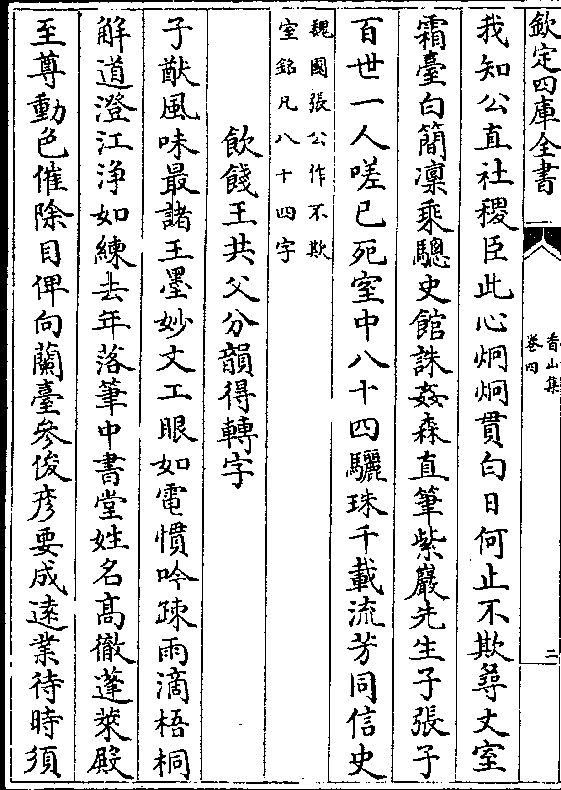 欽定四庫全書
香山集
卷四
二
我知公直社稷臣此心炯炯貫白日何止不欺尋丈室
霜臺白簡凛乘驄史館誅姦森直筆紫巖先生子張子
百世一人嗟已死室中八十四驪珠千載流芳同信史
魏國張公作不欺
室銘凡八十四字
飲餞王共父分韻得轉字
子猷風味最諸王墨妙文工眼如電慣吟疎雨滴梧桐
解道澄江浄如練去年落筆中書堂姓名髙徹蓬萊殿
至尊動色催除目俾向蘭臺參俊彦要成遠業待時須